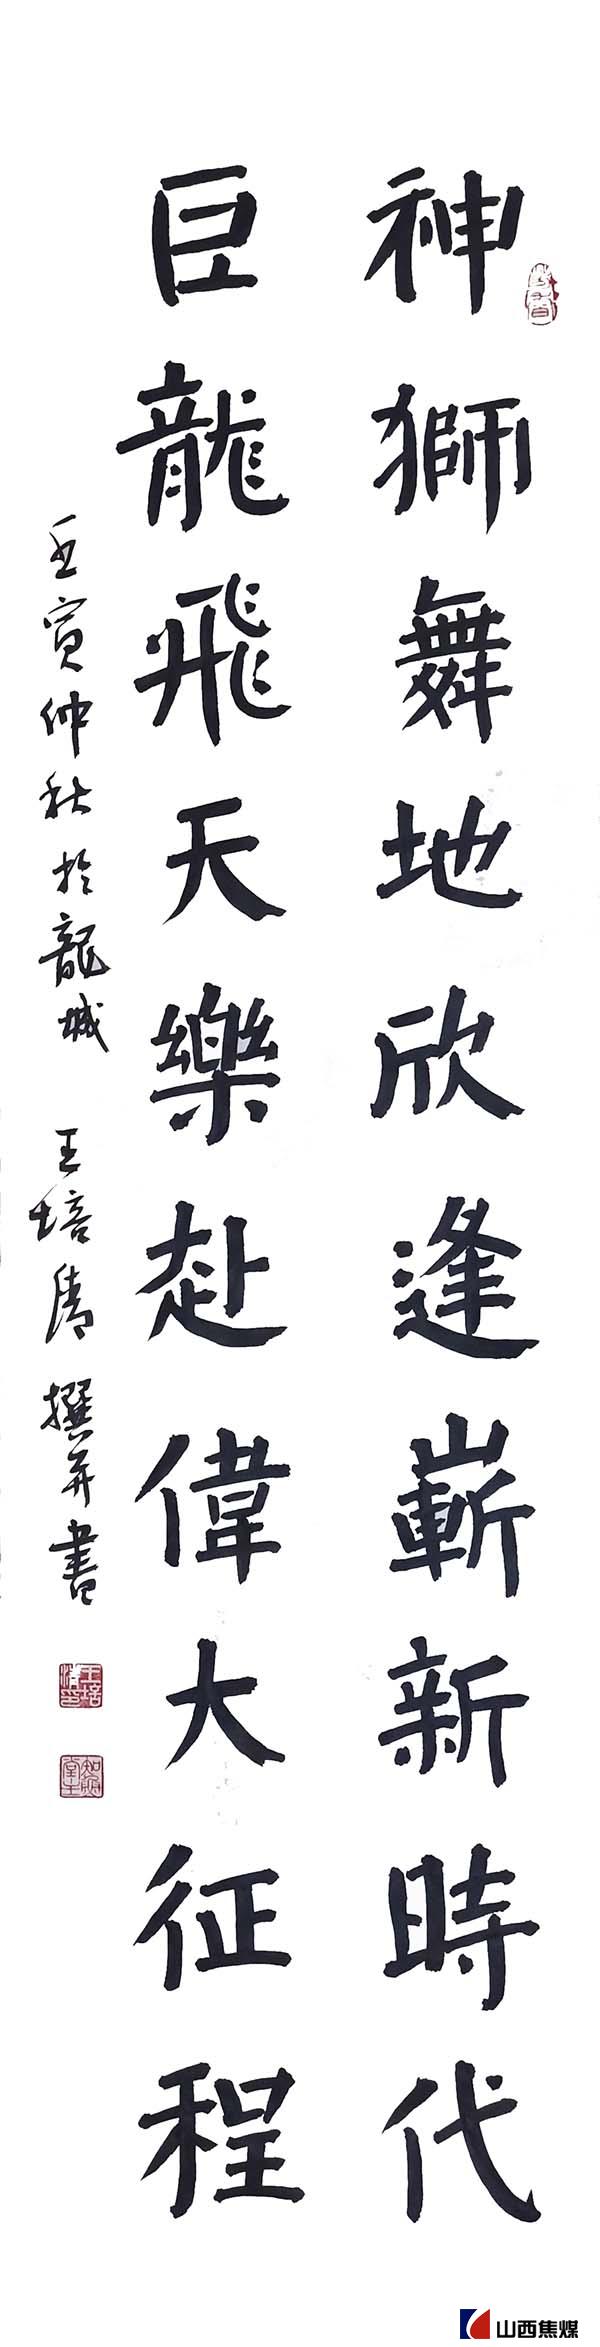 神獅舞地欣逢嶄新時代
巨龍飛天樂赴偉大征程
壬寅仲秋於龍城 王培清撰并書
王培清印
山西焦煤